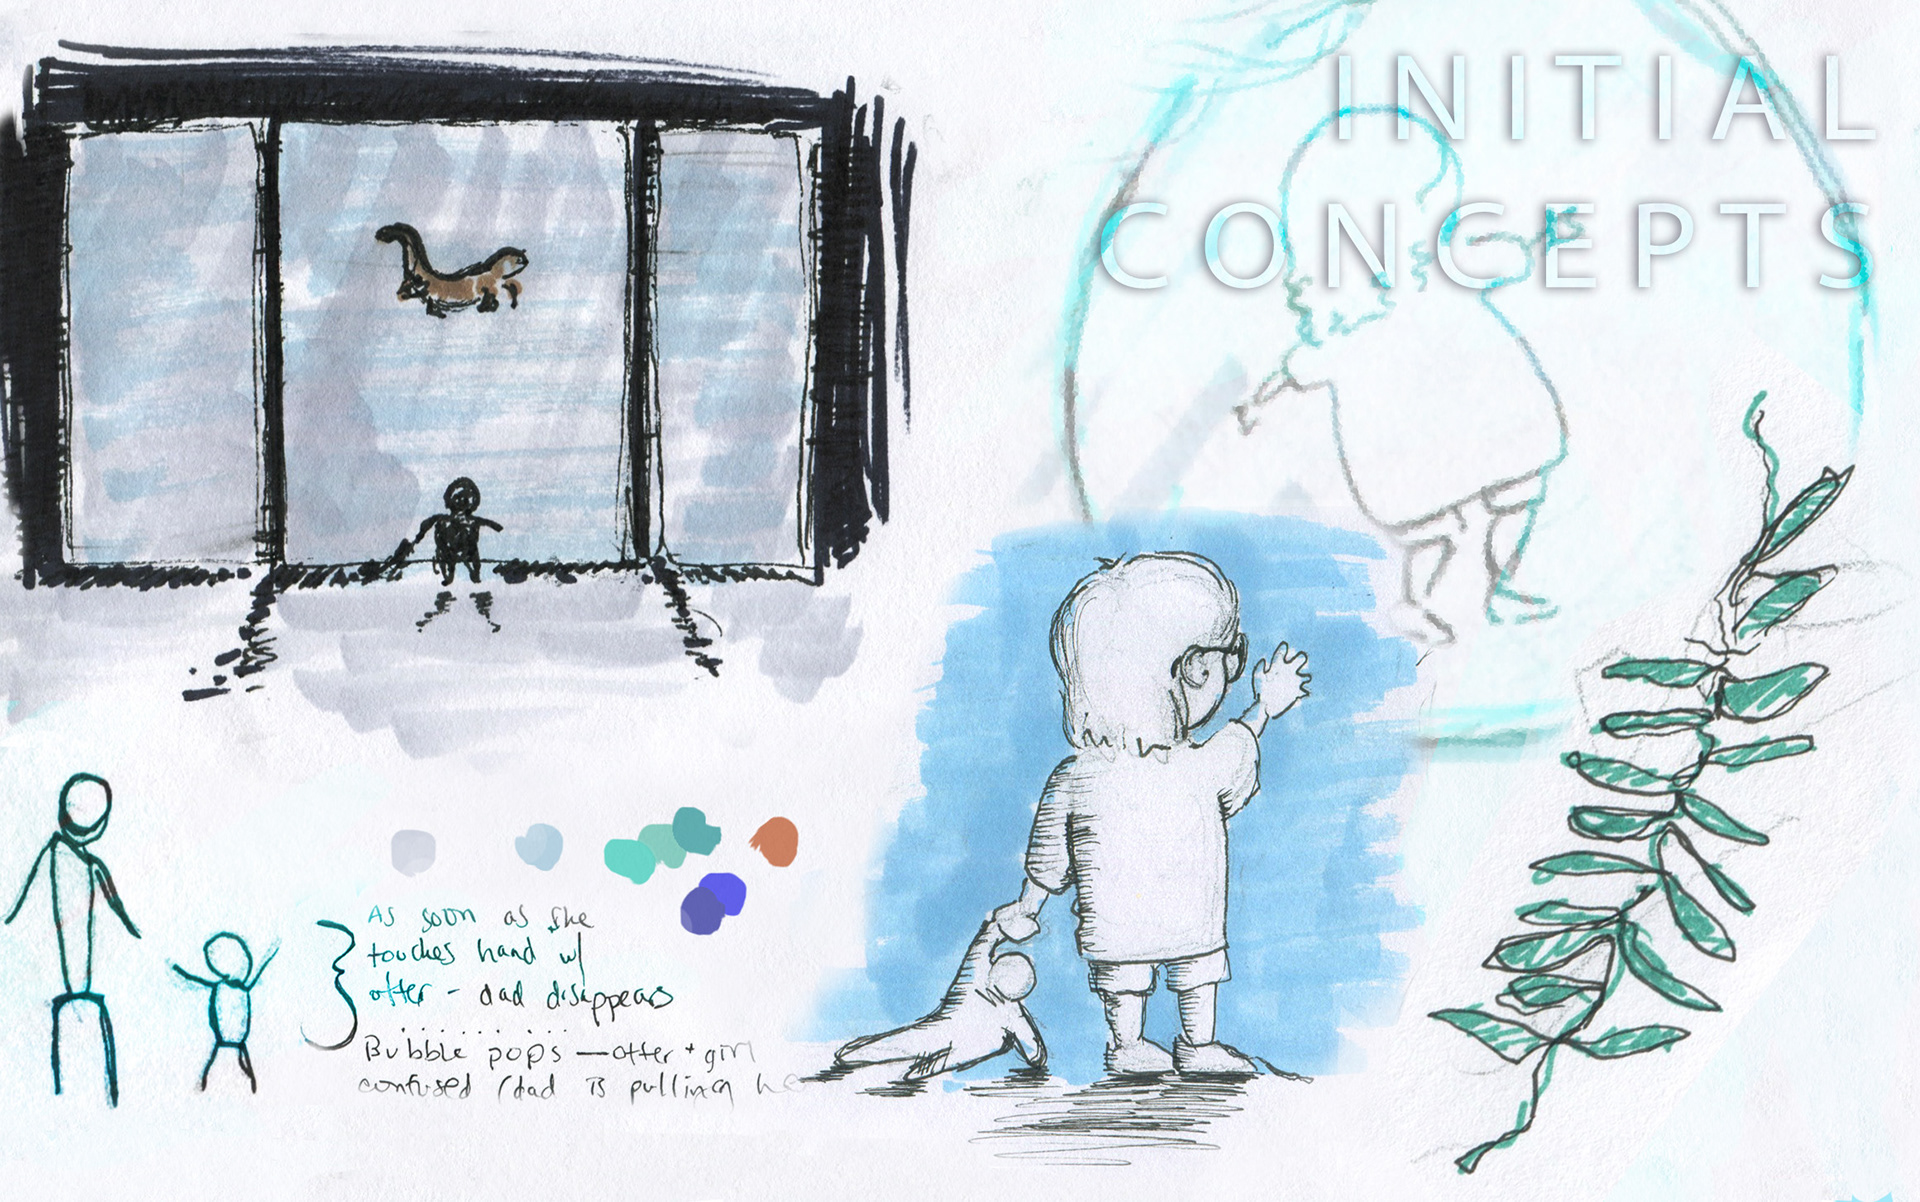 INITIAL
CONCEPTS
As soon as she
touches hand w/
otter - dad disappears
Bubble pops — otter + girl
confused (dad is pulling he